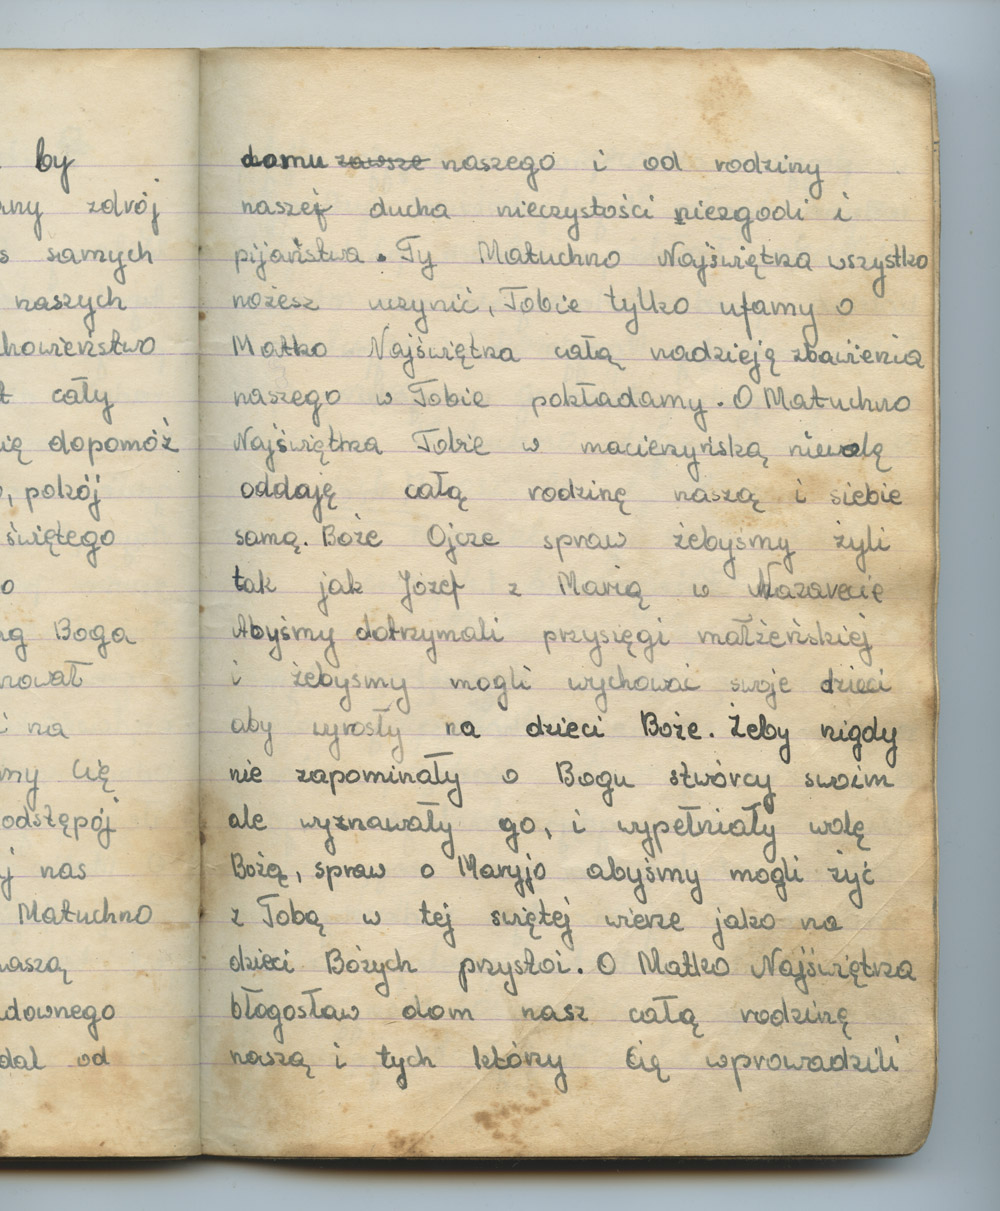 by
rny zdrój
s samych
naszych
howieństwo
t cały
ię dopomóż
, pokój
świętego
o
Boga
nował
i na
my Cię
odstępój
j nas
Matuchno
naszą
downego
dal od
domu zawsze naszego i od rodziny
naszej ducha nieczystości niezgodi i
pijaństwa. Ty Matuchno Najświętrza wszystko
możesz uczynić, Tobie tylko ufamy o
Matko Najświętrza całą nadzieję zbawienia
naszego w Tobie pokładamy. O Matuchno
Najświętrza Tobie w macierzyńską niewolę
oddaję całą rodzinę naszą i siebie
samą. Boże Ojcze spraw żebyśmy żyli
tak jak Józef z Marią w Nazarecie
Abyśmy dotrzymali przysięgi małżeńskiej
i żebysmy mogli wychować swoje dzieci
aby wyrosły na dzieci Boże. Żeby nigdy
nie zapominały o Bogu stwórcy swoim
ale wyznawały go, i wypełniały wolę
Bożą, spraw o Maryjo abyśmy mogli żyć
z Tobą w tej świętej wierze jako na
dzieci Bożych przystoi. O Matko Najświętrza
błogosław dom nasz całą rodzinę
naszą i tych którzy Cię wprowadzili